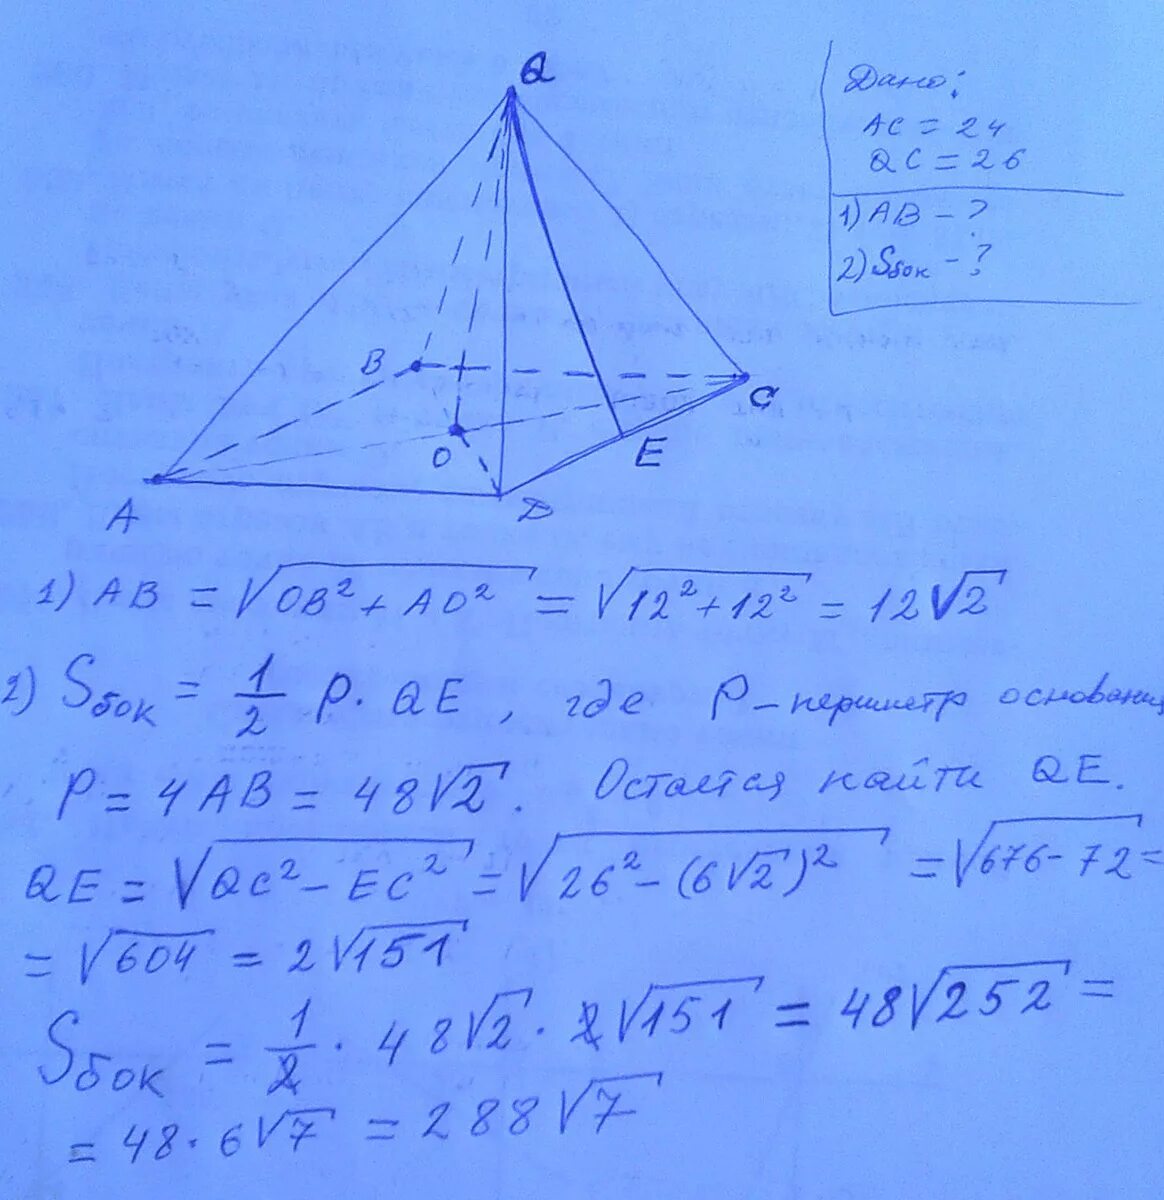 Q
Дано:
AC = 24
QC = 26
1) AB - ?
2) Sбок - ?
B
C
O
E
A
D
1) AB = √(OB² + AO²) = √(12² + 12²) = 12√2
2) Sбок = 1/2 P · QE, где P - периметр основания
P = 4AB = 48√2. Остается найти QE.
QE = √(QC² - EC²) = √(26² - (6√2)²) = √(676 - 72) =
= √604 = 2√151
Sбок = 1/2 · 48√2 · 2√151 = 48√252 =
= 48 · 6√7 = 288√7